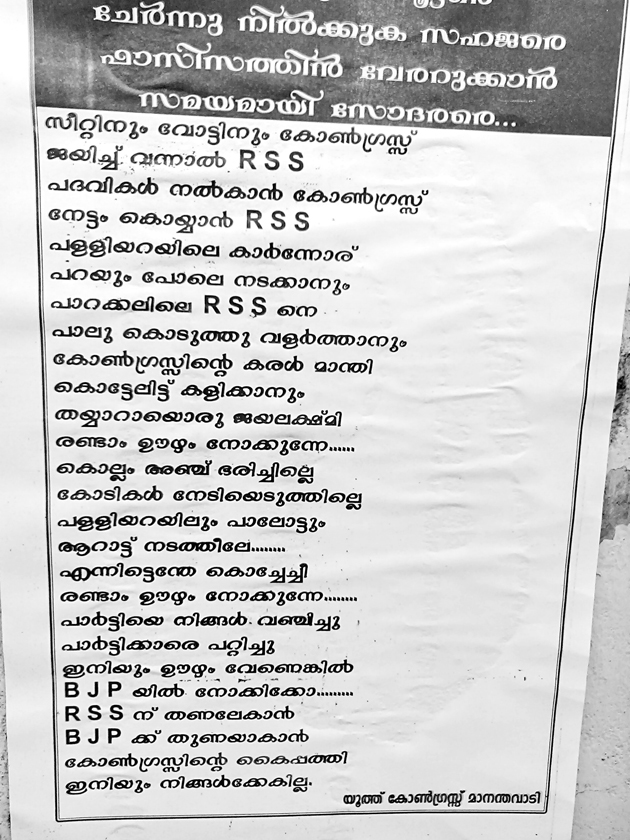 ചേർന്നു നിൽക്കുക സഹജരെ
ഫാസിസത്തിൻ വേരറുക്കാൻ
സമയമായി സോദരരെ...
സീറ്റിനും വോട്ടിനും കോൺഗ്രസ്സ്
ജയിച്ച് വന്നാൽ RSS
പദവികൾ നൽകാൻ കോൺഗ്രസ്സ്
നേട്ടം കൊയ്യാൻ RSS
പള്ളിയറയിലെ കാർന്നോര്
പറയും പോലെ നടക്കാനും
പാറക്കലിലെ RSS നെ
പാലു കൊടുത്തു വളർത്താനും
കോൺഗ്രസ്സിന്റെ കരൾ മാന്തി
കൊട്ടേലിട്ട് കളിക്കാനും
തയ്യാറായൊരു ജയലക്ഷ്മി
രണ്ടാം ഊഴം നോക്കുന്നേ......
കൊല്ലം അഞ്ച് ഭരിച്ചില്ലെ
കോടികൾ നേടിയെടുത്തില്ലെ
പള്ളിയറയിലും പാലോട്ടും
ആറാട്ട് നടത്തീലേ........
എന്നിട്ടെന്തേ കൊച്ചേച്ചീ
രണ്ടാം ഊഴം നോക്കുന്നേ........
പാർട്ടിയെ നിങ്ങൾ വഞ്ചിച്ചു
പാർട്ടിക്കാരെ പറ്റിച്ചു
ഇനിയും ഊഴം വേണെങ്കിൽ
BJP യിൽ നോക്കിക്കോ.........
RSS ന് തണലേകാൻ
BJP ക്ക് തുണയാകാൻ
കോൺഗ്രസ്സിന്റെ കൈപ്പത്തി
ഇനിയും നിങ്ങൾക്കേകില്ല.
യൂത്ത് കോൺഗ്രസ്സ് മാനന്തവാടി